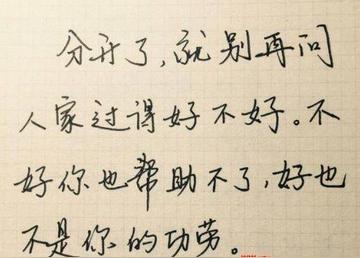 分开了，就别再问
人家过得好不好。不
好你也帮助不了，好也
不是你的功劳。